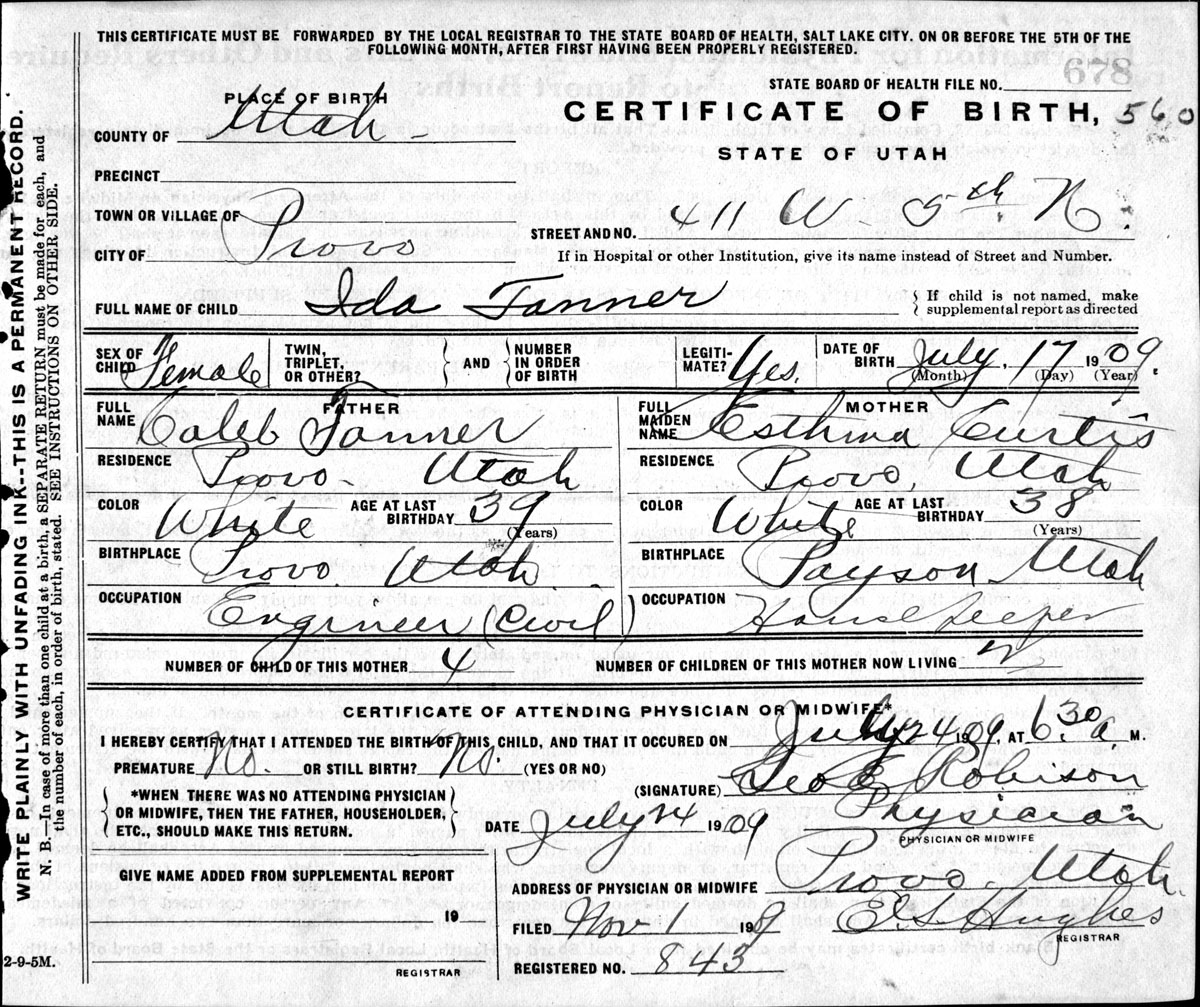 THIS CERTIFICATE MUST BE FORWARDED BY THE LOCAL REGISTRAR TO THE STATE BOARD OF HEALTH, SALT LAKE CITY, ON OR BEFORE THE 5TH OF THE
FOLLOWING MONTH, AFTER FIRST HAVING BEEN PROPERLY REGISTERED.
WRITE PLAINLY WITH UNFADING INK--THIS IS A PERMANENT RECORD.
N. B.—In case of more than one child at a birth, a SEPARATE RETURN must be made for each, and
the number of each, in order of birth, stated. SEE INSTRUCTIONS ON OTHER SIDE.
STATE BOARD OF HEALTH FILE NO.
PLACE OF BIRTH
CERTIFICATE OF BIRTH, 560
COUNTY OF Utah
STATE OF UTAH
PRECINCT
TOWN OR VILLAGE OF Provo
STREET AND NO. 411 W 5th N.
CITY OF
If in Hospital or other Institution, give its name instead of Street and Number.
FULL NAME OF CHILD Ida Tanner
If child is not named, make
supplemental report as directed
SEX OF CHILD Female
TWIN, TRIPLET, OR OTHER?
AND
NUMBER IN ORDER OF BIRTH
LEGITIMATE? Yes.
DATE OF BIRTH July, 17 1909.
(Month) (Day) (Year)
FATHER
FULL NAME Caleb Tanner
RESIDENCE Provo - Utah
COLOR White AGE AT LAST BIRTHDAY 39 (Years)
BIRTHPLACE Provo Utah.
OCCUPATION Engineer (Civil)
MOTHER
FULL MAIDEN NAME Esthma Curtis
RESIDENCE Provo, Utah
COLOR White AGE AT LAST BIRTHDAY 38 (Years)
BIRTHPLACE Payson Utah
OCCUPATION House Keeper
NUMBER OF CHILD OF THIS MOTHER 4
NUMBER OF CHILDREN OF THIS MOTHER NOW LIVING
CERTIFICATE OF ATTENDING PHYSICIAN OR MIDWIFE*
I HEREBY CERTIFY THAT I ATTENDED THE BIRTH OF THIS CHILD, AND THAT IT OCCURED ON July 1909, AT 6 30 a. M.
PREMATURE No. OR STILL BIRTH? No. (YES OR NO)
(SIGNATURE) Geo E Robison
*WHEN THERE WAS NO ATTENDING PHYSICIAN
OR MIDWIFE, THEN THE FATHER, HOUSEHOLDER,
ETC., SHOULD MAKE THIS RETURN.
DATE July 24 1909
Physician
PHYSICIAN OR MIDWIFE
GIVE NAME ADDED FROM SUPPLEMENTAL REPORT
19
REGISTRAR
ADDRESS OF PHYSICIAN OR MIDWIFE Provo - Utah
FILED Nov. 1 1909 Hughes
REGISTRAR
REGISTERED NO. 843
2-9-5M.